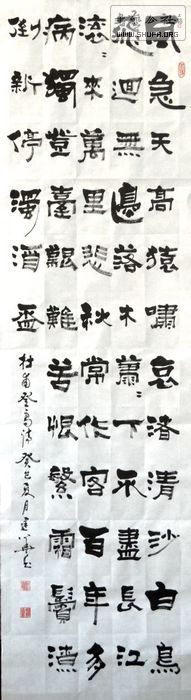 風急天高猿嘯哀渚清沙白鳥
飛迴無邊落木蕭〻下不盡長江
滾〻來萬里悲秋常作客百年多
病獨登臺艱難苦恨繁霜鬢潦
倒新停濁酒盃
杜甫登高詩癸巳夏月建華書
WWW.SHUFA.ORG